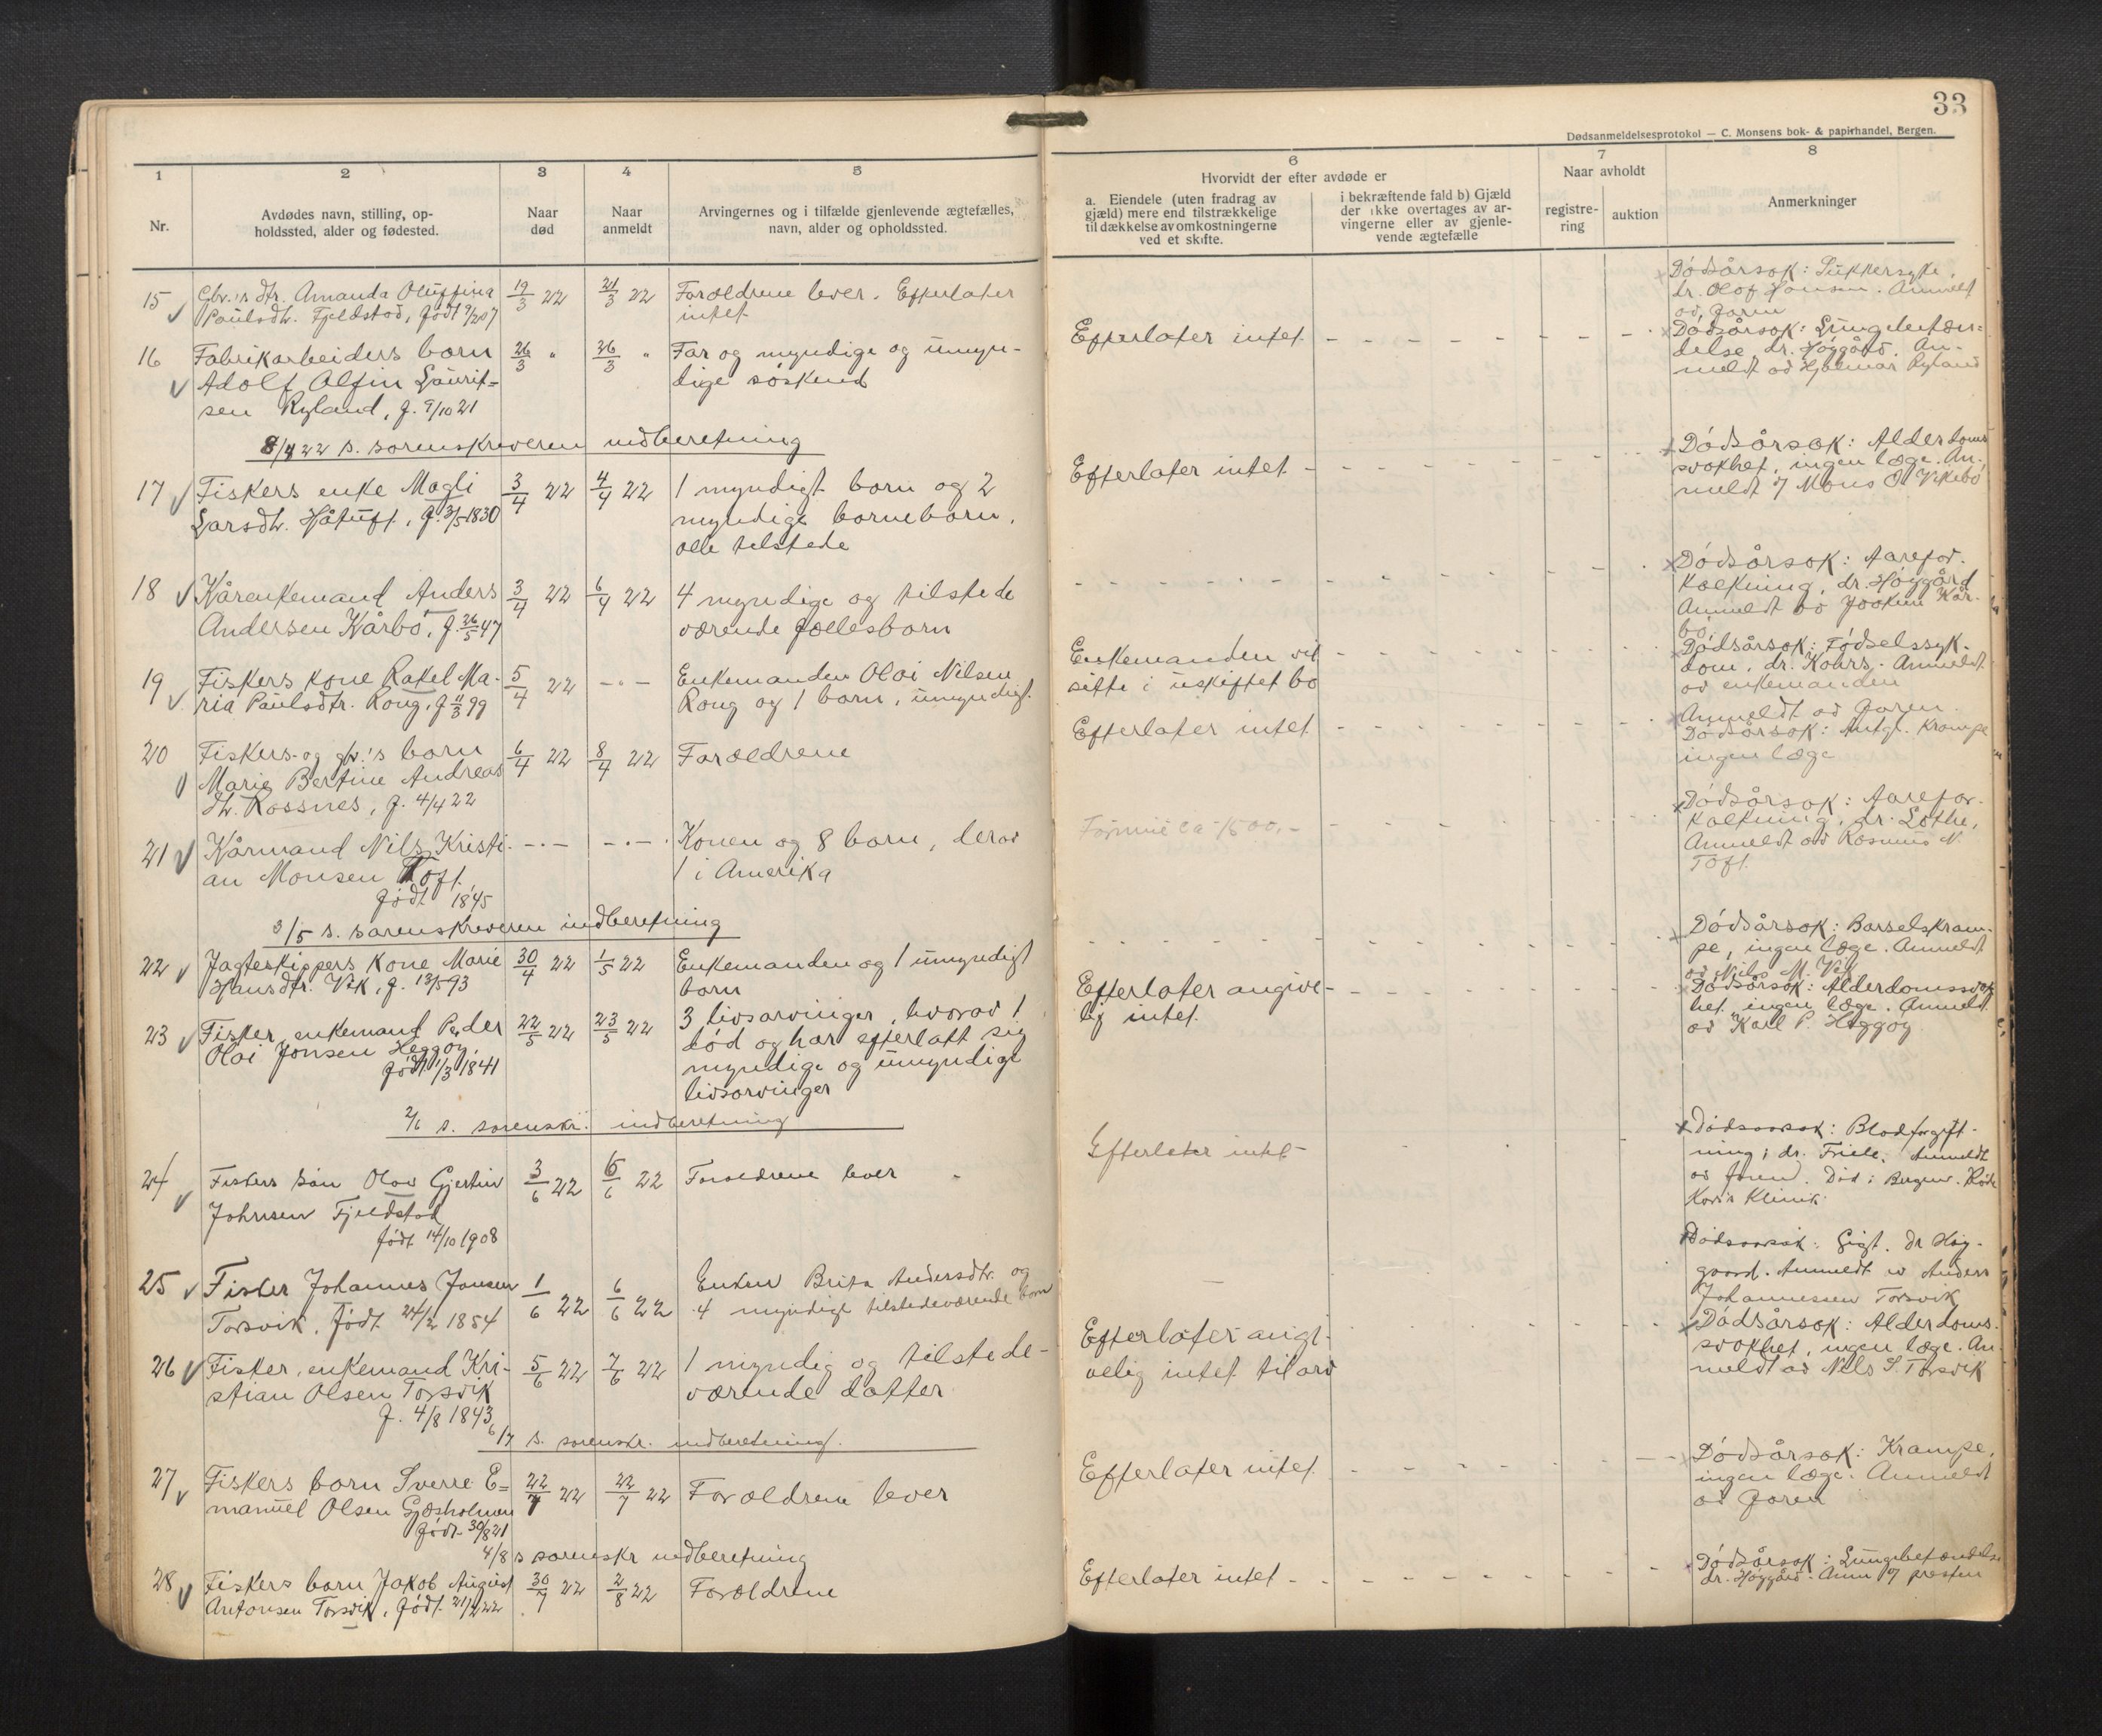 33
Dødsanmeldelsesprotokol — C. Monsens bok- & papirhandel, Bergen.
1
2
3
4
5
Nr.
Avdødes navn, stilling, op-
holdssted, alder og fødested.
Naar
død
Naar
anmeldt
Arvingernes og i tilfælde gjenlevende ægtefælles,
navn, alder og opholdssted.
6
Hvorvidt der efter avdøde er
a. Eiendele (uten fradrag av
gjæld) mere end tilstrækkelige
til dækkelse av omkostningerne
ved et skifte.
i bekræftende fald b) Gjæld
der ikke overtages av ar-
vingerne eller av gjenle-
vende ægtefælle
7
Naar avholdt
registre-
ring
auktion
8
Anmerkninger
15 Gbr.'s dtr. Amanda Oluffina 19/3 22 21/3 22 Forældrene lever. Efterlater
Paulsdtr. Fjeldstad, født 9/2 07 intet
Dödsårsak: Sukkersyke,
dr. Olaf Hansen. Anmeldt
av faren
16 Fabrikarbeiders barn 26/3 " 26/3 " Far og myndige og umyn-
Adolf Alfin Laurit= dige søskend
sen Ryland, f. 9/10 21
Efterlater intet
Dödsårsak: Lungebetæn=
delse, dr. Höygård. An-
meldt av Hjalmar Ryland
8/4 22 s. sorenskriveren indberetning
17 Fiskers enke Magli 3/4 22 4/4 22 1 myndigt barn og 2
Larsdtr. Håtuft, f. 3/5 1830 myndige barnebarn,
alle tilstede
Efterlater intet
Dödsårsak: Alderdoms
svakhet, ingen læge. An-
meldt af Mons O. Vikebø
18 Kårenkemand Anders 3/4 22 6/4 22 4 myndige og tilstede
Andersen Kårbø, f. 26/5 47 værende fællesbarn
Dödsårsak: Aarefor-
kalkning, dr. Höygård
Anmeldt av Joakim Kår-
bø.
19 Fiskers kone Rakel Ma- 5/4 22 -"- Enkemanden Olai Nilsen
ria Paulsdtr. Rong, f. 11/3 99 Rong og 1 barn, umyndigt.
Enkemanden vil
sitte i uskiftet bo
Dödsårsak: Fødselssyk-
dom, dr. Kohrs. Anmeldt
av enkemanden
20 Fiskers- og gbr.'s barn 6/4 22 8/4 22 Forældrene
Marie Bertine Andreas
dtr. Rossnes, f. 4/4 22
Efterlater intet
Anmeldt av faren.
Dødsårsak: Antgl. Krampe
ingen læge
21 Kårmand Nils Kristi- -"- -"- Konen og 8 barn, derav
an Monsen Toft. 1 i Amerika
født 1845
Formue ca 1500,-
Dödsårsak: Aarefor-
kalkning, dr. Lothe,
Anmeldt av Rasmus N.
Toft.
3/5 s. sorenskriveren indberetning
22 Jagteskippers kone Marie 30/4 22 1/5 22 Enkemanden og 1 umyndigt
Hansdtr. Vik, f. 13/5 93 barn
Dødsårsak: Barselskram-
pe, ingen læge. Anmeldt
av Nils M. Vik
23 Fisker, enkemand Peder 22/5 22 23/5 22 3 livsarvinger, hvorav 1
Olai Jonsen Heggøy, død og har efterlatt sig
født 1/3 1841 myndige og umyndige
livsarvinger
Efterlater angive-
lig intet
Dødsårsak: Alderdomssvak
het, ingen læge. Anmeldt
av Karl P. Heggøy
2/6 s. sorenskr. indberetning
24 Fiskers sön Olav Gjertin 3/6 22 6/6 22 Forældrene lever
Johnsen Fjeldstad
født 14/10 1908
Efterlater intet
Dødsaarsak: Blodforgift-
ning, dr. Friele. Anmeldt
av faren. Død i Bergen. Röde
Kors's Klinik
25 Fisker Johannes Jonsen 1/6 22 6/6 22 Enken Brita Andersdtr. og
Torsvik, født 24/2 1854 4 myndige tilstedeværende barn
Dödsaarsak: Gigt. dr Höy-
gaard. Anmeldt av Anders
Johannessen Torsvik
26 Fisker, enkemand Kri- 5/6 22 7/6 22 1 myndig og tilstede-
stian Olsen Torsvik værende datter
f. 4/8 1843
Efterlater angi-
velig intet til arv
Dödsårsak: Alderdoms-
svakhet, ingen læge. An-
meldt av Nils S. Torsvik
6/7 s. sorenskr. indberetning.
27 Fiskers barn Sverre E= 22/7 22 22/7 22 Forældrene lever
manuel Olsen Gjæsholmen
født 30/8 21
Efterlater intet
Dödsårsak: Krampe,
ingen læge. Anmeldt
av faren
4/8 s sorenskr indberetning
28 Fiskers barn Jakob August 30/7 22 2/8 22 Forældrene
Antonsen Torsvik, født 21/2 22
Efterlater intet
Dödsårsak: Lungebetændelse
dr. Höygård. Anm af presten